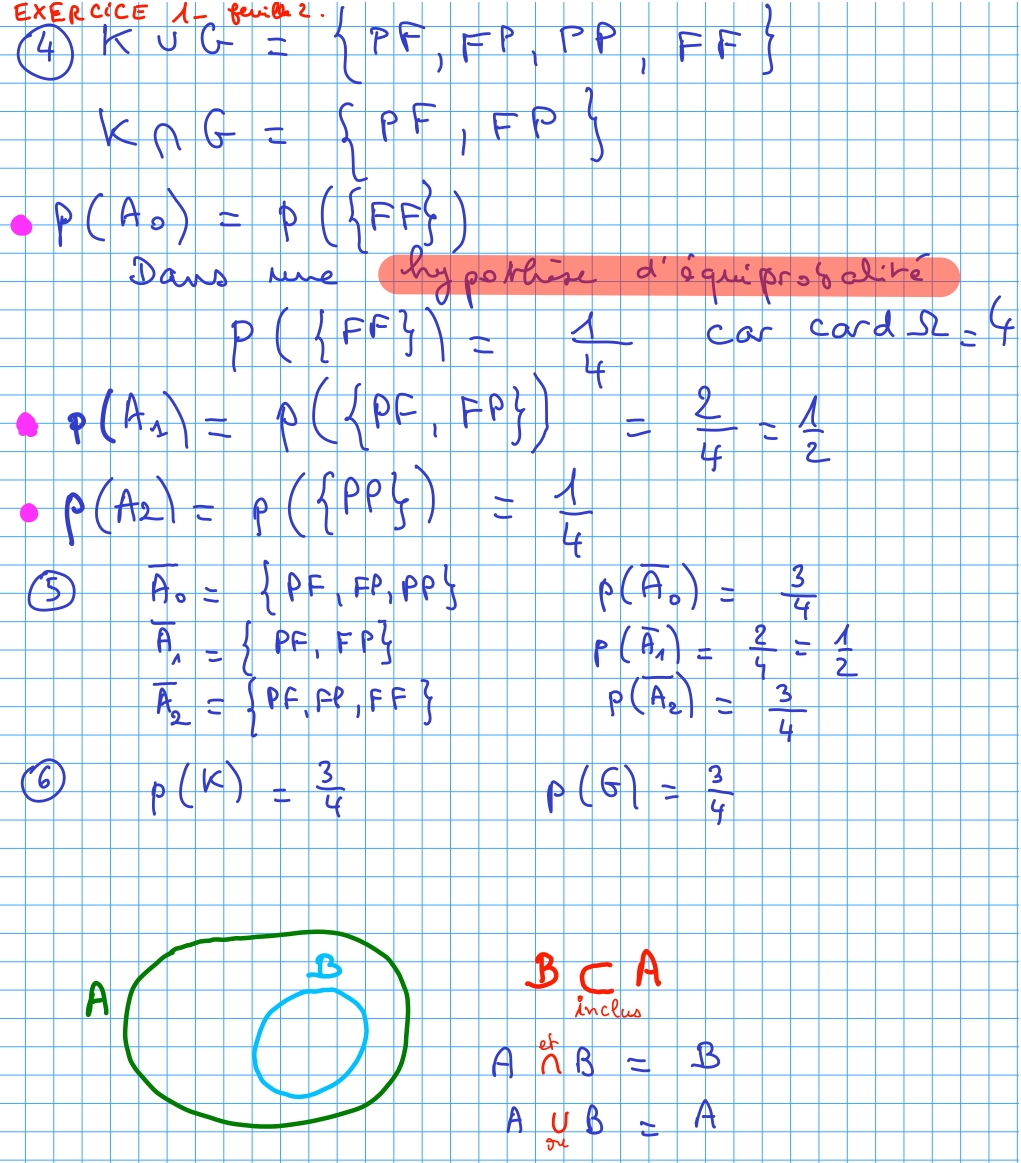 EXERCICE 1_ feuille 2.
④ K ∪ G = { PF, FP, PP, FF }
K ∩ G = { PF, FP }
• p(A₀) = p({FF})
Dans une hypothèse d'équiprobalité
P({FF}) = 1/4 car card Ω = 4
• p(A₁) = p({PF, FP}) = 2/4 = 1/2
• p(A₂) = p({PP}) = 1/4
⑤ A̅₀ = {PF, FP, PP} p(A̅₀) = 3/4
A̅₁ = { PF, FP} p(A̅₁) = 2/4 = 1/2
A̅₂ = {PF, FP, FF} p(A̅₂) = 3/4
⑥ p(K) = 3/4 p(G) = 3/4
A
B
B ⊂ A
inclus
et
A ∩ B = B
A ∪ B = A
ou